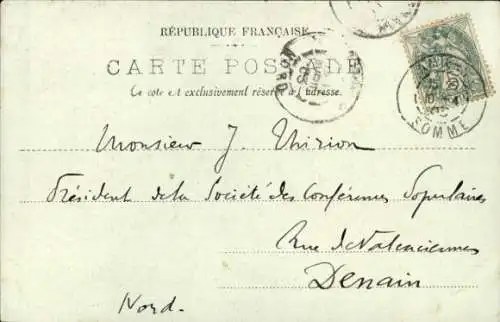 RÉPUBLIQUE FRANÇAISE
CARTE POSTALE
Ce côté est exclusivement réservé à l'adresse.
NORD
SOMME
Monsieur J. Thirion
Président de la Société des Conférences Populaires
Rue de Valenciennes
Denain
Nord.